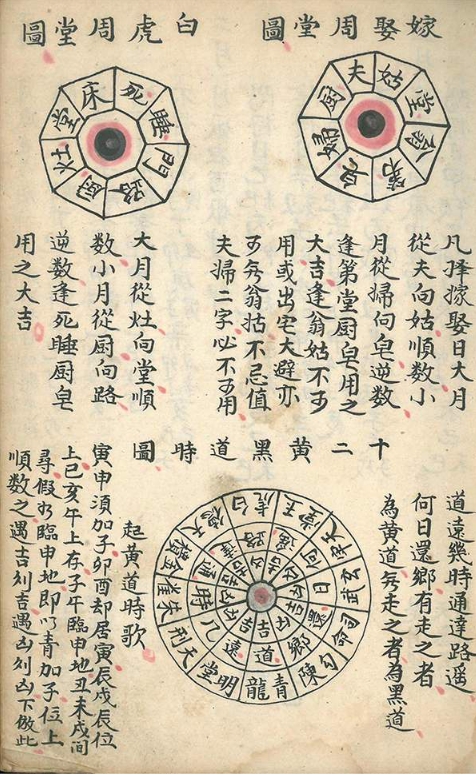 嫁娶周堂圖
夫
姑
堂
翁
第
皂
婦
厨
凡擇嫁娶日大月
從夫向姑順數小
月從婦向皂逆數
逢第堂厨皂用之
大吉逢翁姑不可
用或出宅大避亦
可旡翁姑不忌值
夫婦二字必不可用
白虎周堂圖
床
死
睡
門
路
厨
灶
堂
大月從灶向堂順
數小月從厨向路
逆数逢死睡厨皂
用之大吉
十二黃黑道時圖
道遠幾時通達路遥
何日還鄉有走之者
為黃道旡走之者為黑道
青龍
明堂
天刑
朱雀
金匱
天德
白虎
玉堂
天牢
玄武
司命
勾陳
道
遠
几
時
通
達
路
遥
何
日
還
鄉
起黃道時歌
寅申須加子卯酉却居寅辰戌辰位
上巳亥午上存子午臨申地丑未戌间
尋假如臨申地即以青加子位上
順数之遇吉则吉遇凶则凶下倣此